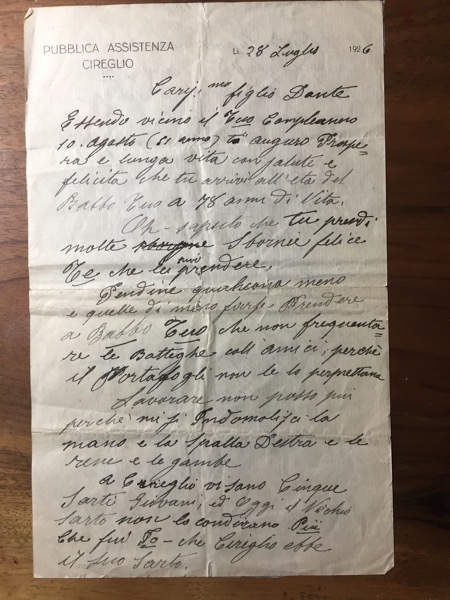 PUBBLICA ASSISTENZA
CIREGLIO
Lì 28 Luglio 1926
Carissimo figlio Dante
Essendo vicino il Tuo Compleanno
10. Agosto (51 anno) ti auguro Prospe
ra e lunga vita con salute e
felicità che tu arrivi all'età del
Babbo Tuo a 78 anni di Vita.
Oh - saputo che tu prendi
molte Sbornie felice
Te che lei puoi prendere,
Pendine qualcosina meno
e quelle di meno farse Prendere
a Babbo Tuo che non frequenta
re le Botteghe coll'amici, perchè
il Portafogli non le lo permettana
Lavorare non posso più
perchè mi si Indomolisci la
mano e la spalla Destra e le
rene e le gambe
a Cireglio vi sono Cinque
Sarti Giovani, ed Oggi il Vechio
Sarto non lo condirano Più
Che fui Io - che Ciriglio ebbe
il suo Sarto.